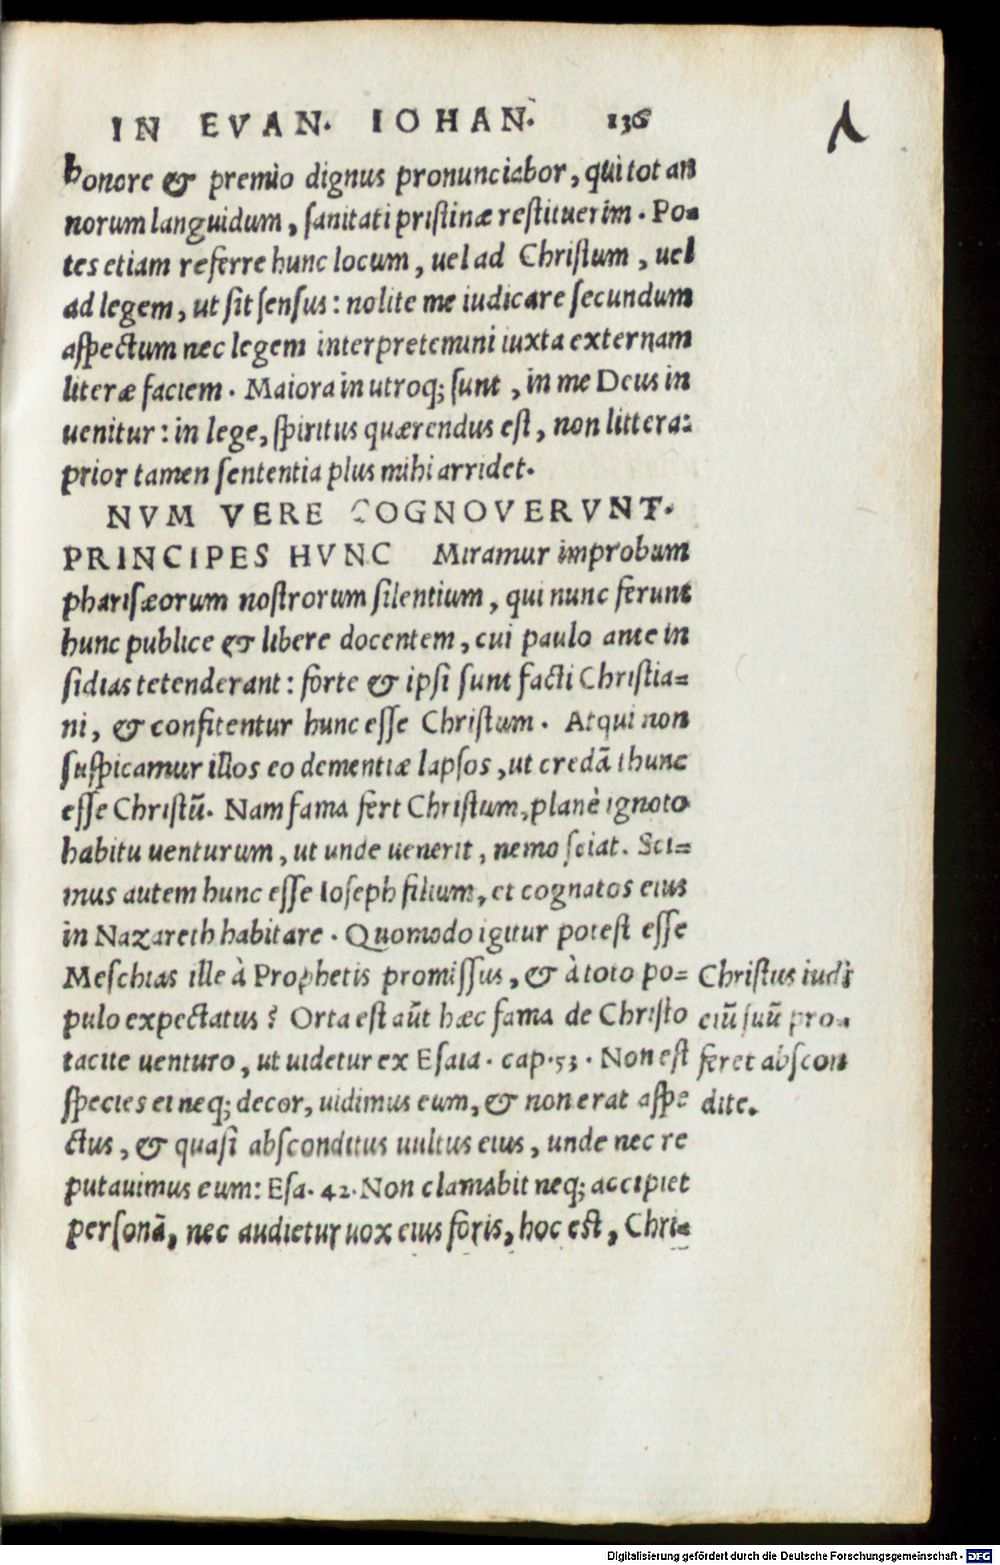 IN EVAN. IOHAN. 136
honore & premio dignus pronunciabor, qui tot an
norum languidum, sanitati pristinæ restituerim. Po-
tes etiam referre hunc locum, uel ad Christum, uel
ad legem, ut sit sensus: nolite me iudicare secundum
aspectum nec legem interpretemini iuxta externam
literæ faciem. Maiora in utroq; sunt, in me Deus in
uenitur: in lege, spiritus quærendus est, non littera:
prior tamen sententia plus mihi arridet.
NVM VERE COGNOVERVNT.
PRINCIPES HVNC Miramur improbum
pharisæorum nostrorum silentium, qui nunc ferunt
hunc publice & libere docentem, cui paulo ante in
sidias tetenderant: forte & ipsi sunt facti Christia-
ni, & confitentur hunc esse Christum. Atqui non
suspicamur illos eo dementiæ lapsos, ut credāt hunc
esse Christū. Nam fama fert Christum, planè ignoto
habitu uenturum, ut unde uenerit, nemo sciat. Sci-
mus autem hunc esse Ioseph filium, et cognatos eius
in Nazareth habitare. Quomodo igitur potest esse
Meschias ille à Prophetis promissus, & à toto po-
pulo expectatus? Orta est aūt hæc fama de Christo
tacite uenturo, ut uidetur ex Esaia. cap. 53. Non est
species ei neq; decor, uidimus eum, & non erat aspe
ctus, & quasi absconditus uultus eius, unde nec re
putauimus eum: Esa. 42. Non clamabit neq; accipiet
personā, nec audietur uox eius foris, hoc est, Chri-
Christus iudi
ciū suū pro-
feret abscon
dite.
Digitalisierung gefördert durch die Deutsche Forschungsgemeinschaft - DFG